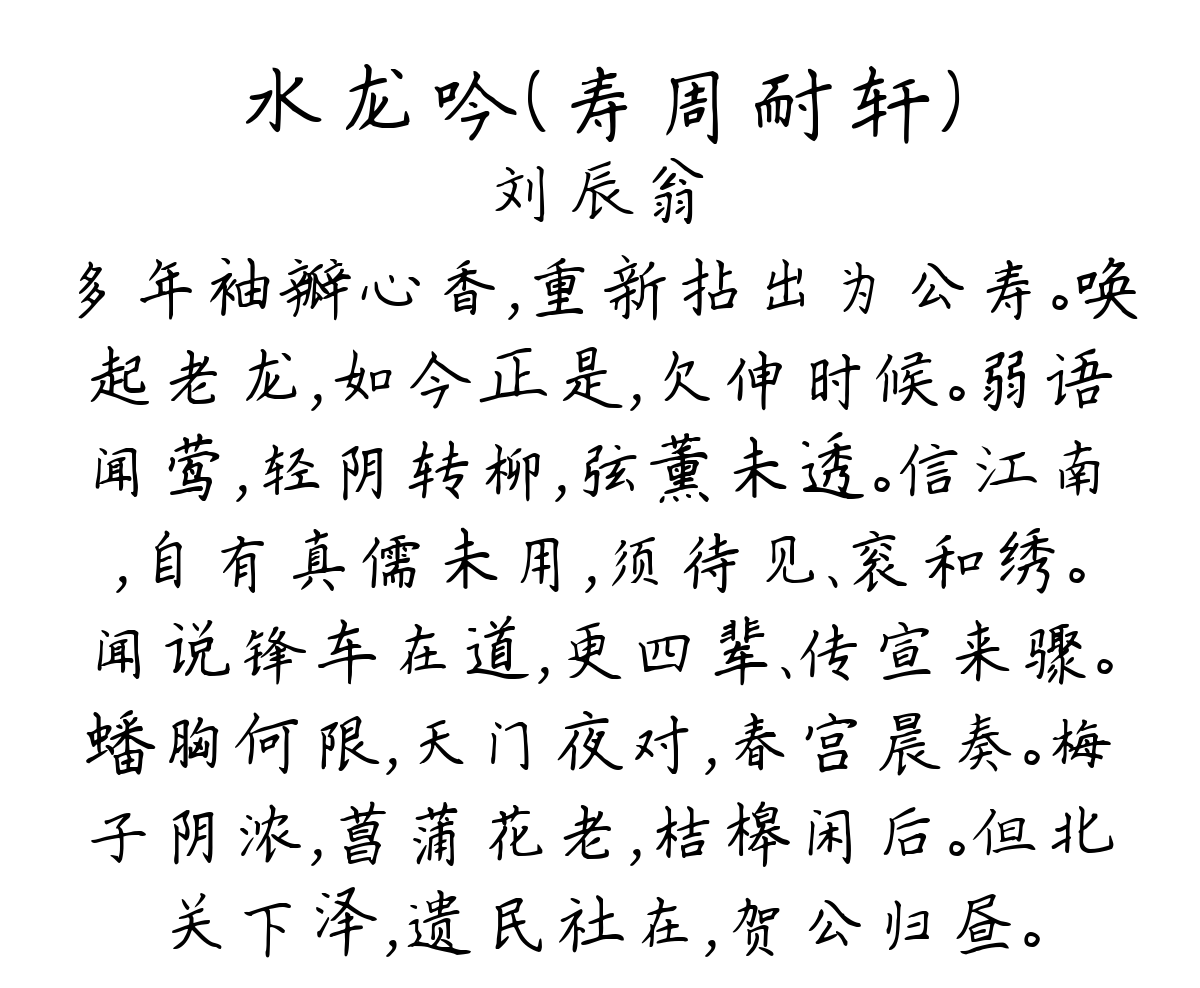 水龙吟(寿周耐轩)
刘辰翁
多年袖瓣心香,重新拈出为公寿。唤
起老龙,如今正是,欠伸时候。弱语
闻莺,轻阴转柳,弦薰未透。信江南
,自有真儒未用,须待见、衮和绣。
闻说锋车在道,更四辈、传宣来骤。
蟠胸何限,天门夜对,春宫晨奏。梅
子阴浓,菖蒲花老,桔槔闲后。但北
关下泽,遗民社在,贺公归昼。